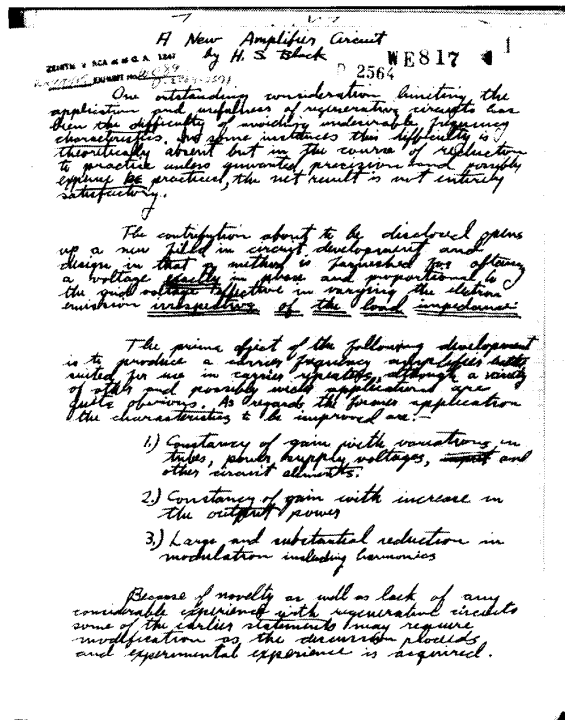 A New Amplifier Circuit
by H. S. Black
WE817
1
ZENITH v RCA et al G. A. 1247
EXHIBIT No.
2564
One outstanding consideration limiting the
application and usefulness of regenerative circuits has
been the difficulty of avoiding undesirable frequency
characteristics. In some instances this difficulty is
theoretically absent but in the course of reduction
to practice unless unwanted precision and possibly
expense be practiced, the net result is not entirely
satisfactory.
The contribution about to be disclosed opens
up a new field in circuit development and
design in that a method is furnished for
a voltage in phase and proportional to
the grid voltage effective in varying the electron
emission irrespective of the load impedance.
The prime object of the following development
is to produce a carrier frequency amplifier better
suited for use in carrier repeaters, although a variety
of other and possibly applications are
quite obvious. As regards the former application
the characteristics to be improved are:-
1.) Constancy of gain with variations in
tubes, power supply voltages, and
other circuit elements.
2.) Constancy of gain with increase in
the output power
3.) Large and substantial reduction in
modulation including harmonics
Because of novelty as well as lack of any
considerable experience with regenerative circuits
some of the earlier statements may require
modification as the discussion proceeds
and experimental experience is acquired.